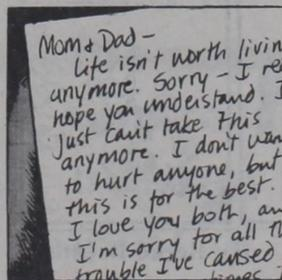 Mom & Dad –
Life isn't worth livin
anymore. Sorry – I re
hope you understand. I
just can't take this
anymore. I don't wan
to hurt anyone, but
this is for the best.
I love you both, an
I'm sorry for all th
trouble I've caused
times